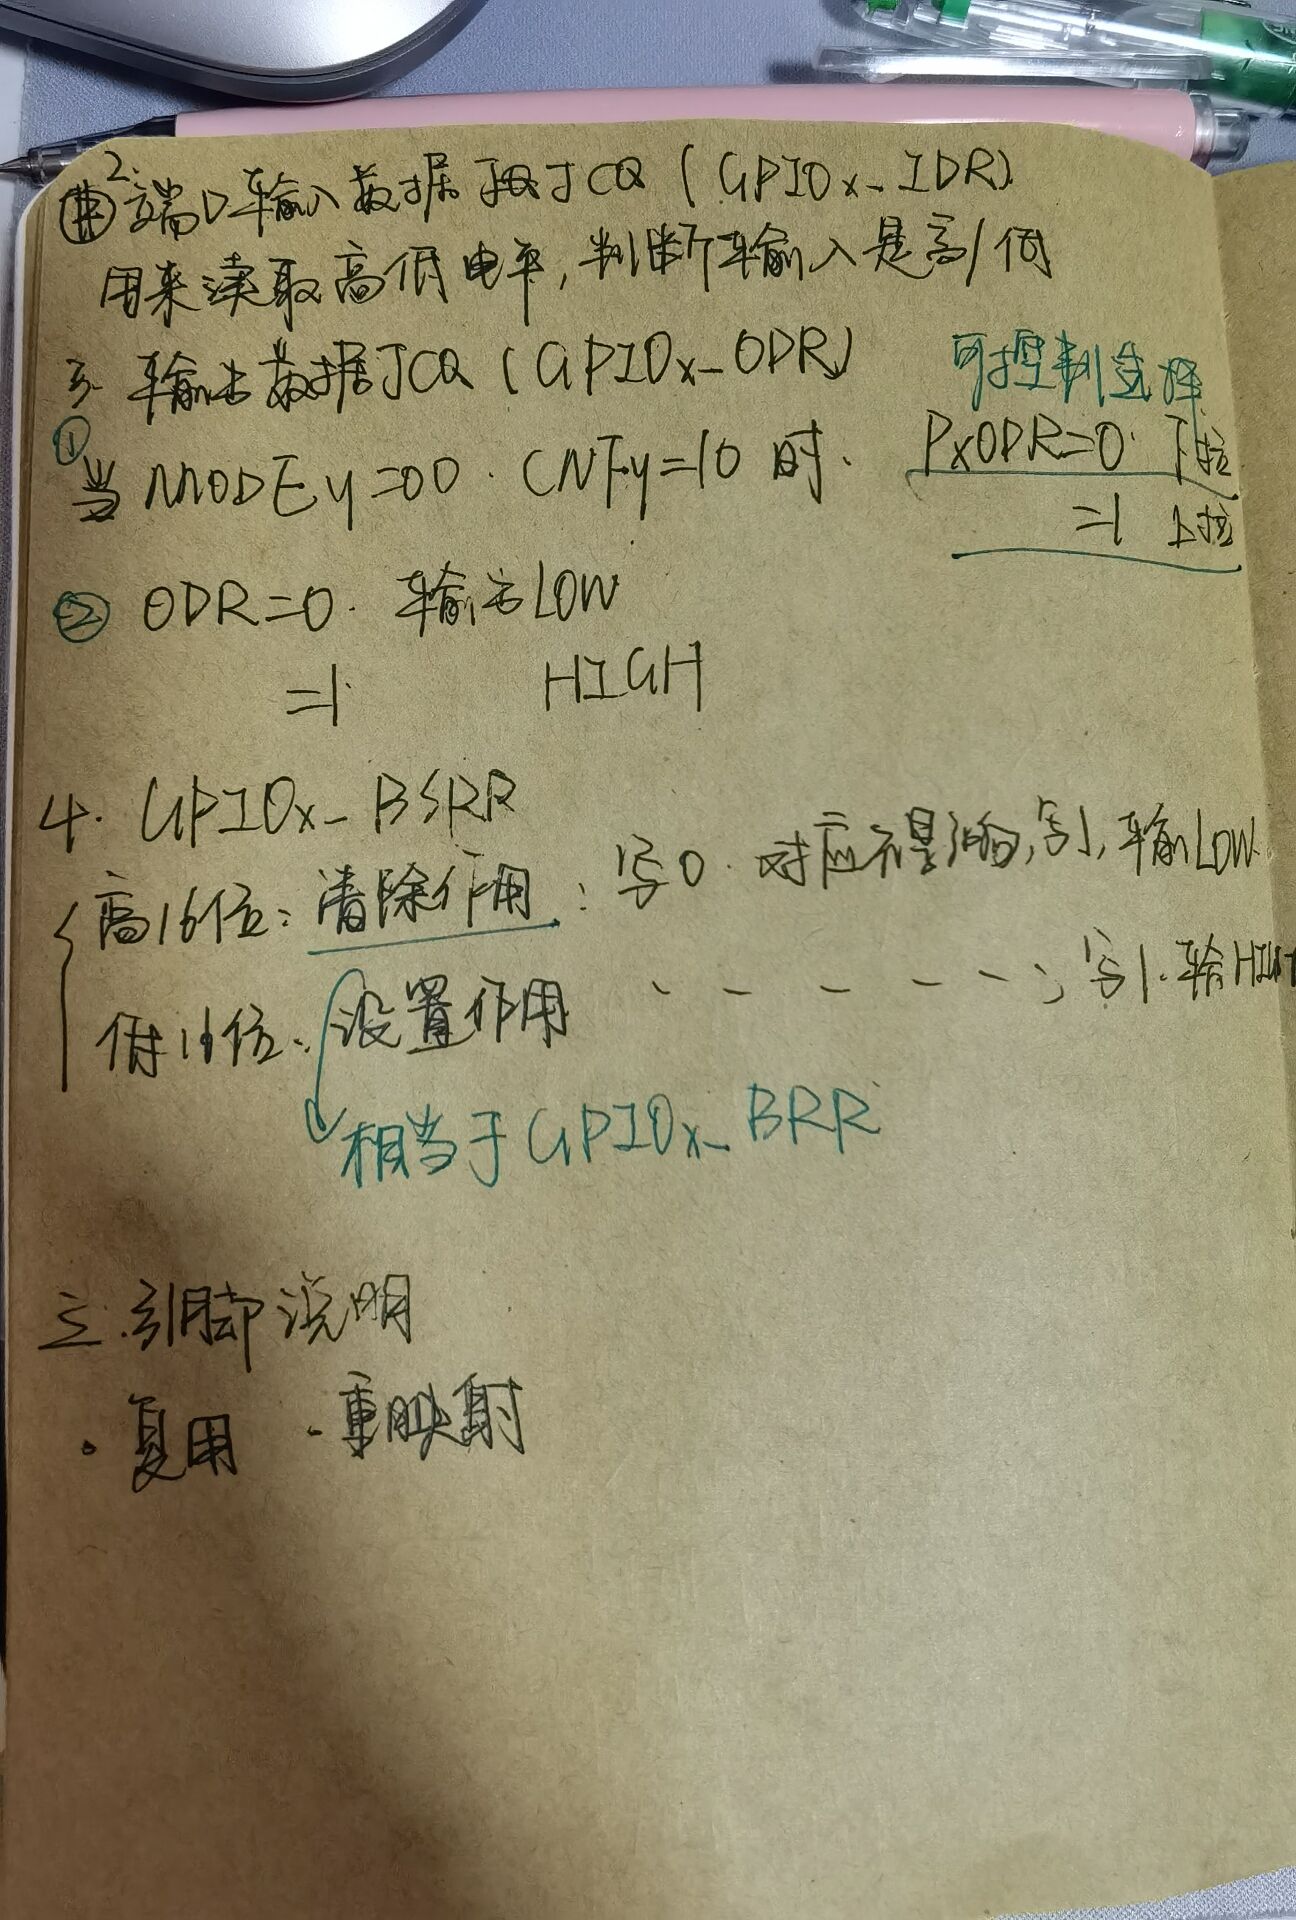 2. 端口输入数据JCQ (GPIOx_IDR)
用来读取高低电平,判断输入是高/低
3. 输出数据JCQ (GPIOx_ODR)
可控制选择
① 当MODEy=00. CNFy=10 时.
PxODR=0. 下拉
=1 上拉
② ODR=0. 输出LOW
=1. HIGH
4. GPIOx_BSRR
高16位: 清除作用: 写0. 对应不影响,写1,输LOW.
低16位: 设置作用 - - - - - ; 写1. 输HIGH
相当于GPIOx_BRR
三. 引脚说明
· 复用 · 重映射